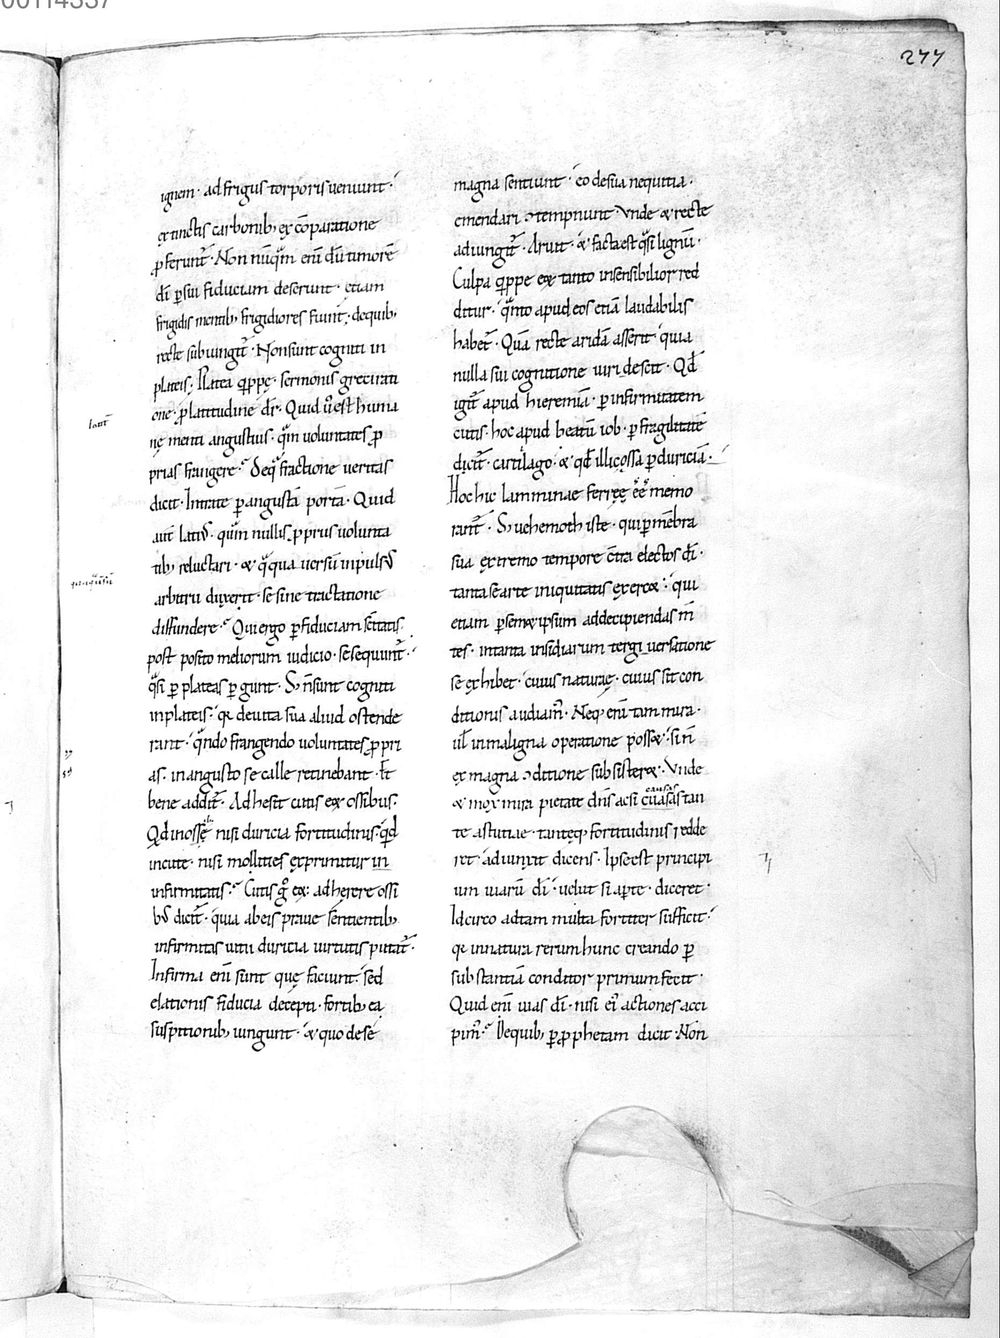 00114337
277
ignem · ad frigus torporis ueniunt ·
extinctis carbonib; ex cōparatione
p̄ferunt̄ · Non nūqͣm eni dū timorē
dī ꝑ sui fiduciam deserunt · etiam
frigidis mentib; frigidiores fiunt; de quib;
recte subiungit̄ · Non sunt cogniti in
plateis; Platea qͥppe · sermonis greci rati
one · ꝓ latitudine dr̄ · Quid ū est huma
nę menti angustius · qͣm uoluntates ꝓ
prias frangere · De qͣ fractione ueritas
dicit · Intrate ꝑ angustā portā · Quid
aut̄ lati᷒ · qͣm nullis ꝓpriis uolunta
tib; reluctari · & qͣ qua uersū inpuls᷒
arbitrii duxerit · se sine tractatione
diffundere · Qui ergo ꝑ fiduciam sc̄itatis
post posito meliorum iudicio · se sequunt̄ ·
qͣsi ꝑ plateas ꝑgunt · S; n̄ sunt cogniti
in plateis · qꝛ de uita sua aliud ostende
rant · qͣndo frangendo uoluntates ꝓpri
as · in angusto se calle retinebant · Et
bene addit̄ · Adhesit cutis eoꝝ ossibus ·
Qd in ossib; nisi duricia fortitudinis · qͥd
in cute · nisi mollities exprimitur in
infirmitatis · Cutis gͦ eoꝝ adherere ossi
b᷒ dicit̄ · quia ab eis praue sentientib;
infirmitas uitii duricia uirtutis putat̄ ·
Infirma eni sunt que faciunt · sed
elationis fiducia decepti · fortib; ea
suspitionib; iungunt · & quo de se
lat̄
magna sentiunt · eo de sua nequitia ·
emendari ɔtempnunt · Vnde & recte
adiungit̄ · Aruit · & facta est qͣsi lignū ·
Culpa qͥppe eoꝝ tanto insensibilior red
ditur · qͣnto apud eos etiā laudabilis
habet̄ · Quā recte aridā asserit · quia
nulla sui cognitione uiridescit · Qd̄
igit̄ apud hieremiā · ꝑ infirmitatem
cutis · hoc apud beatū iob · ꝑ fragilitatē
dicit̄ · cartilago · & qd̄ illic ossa ꝑ duriciā ·
Hoc hic lamminae ferreę ēē memo
rant̄ · S; uehemoth iste · qui ꝑ mēbra
sua extremo tempore c̄tra electos dī ·
tanta se arte iniquitatis exercet · qui
etiam ꝑ semet ipsum ad decipiendas m̄
tes · in tanta insidiarum tergiuersatione
se exhibet · cuius naturae · cuius sit con
ditionis audiam̄ · Neq; eni tam mira ·
uł in maligna operatione posset · si n̄
ex magna ɔditione subsisteret · Vnde
& mox mira pietate dn̄s acsi causas tan
te astutiae · tanteq; fortitudinis redde
ret · adiunxit dicens · Ipse est principi
um uiarū dī · uelut si aꝑte diceret ·
Idcirco ad tam multa fortiter sufficit ·
qꝛ in natura rerum hunc creando ꝑ
substantiā conditor primum fecit ·
Quid eni uias dī · nisi ei᷒ actiones acci
pim᷒ · De quib; ꝑ ꝓphetam dicit · Non